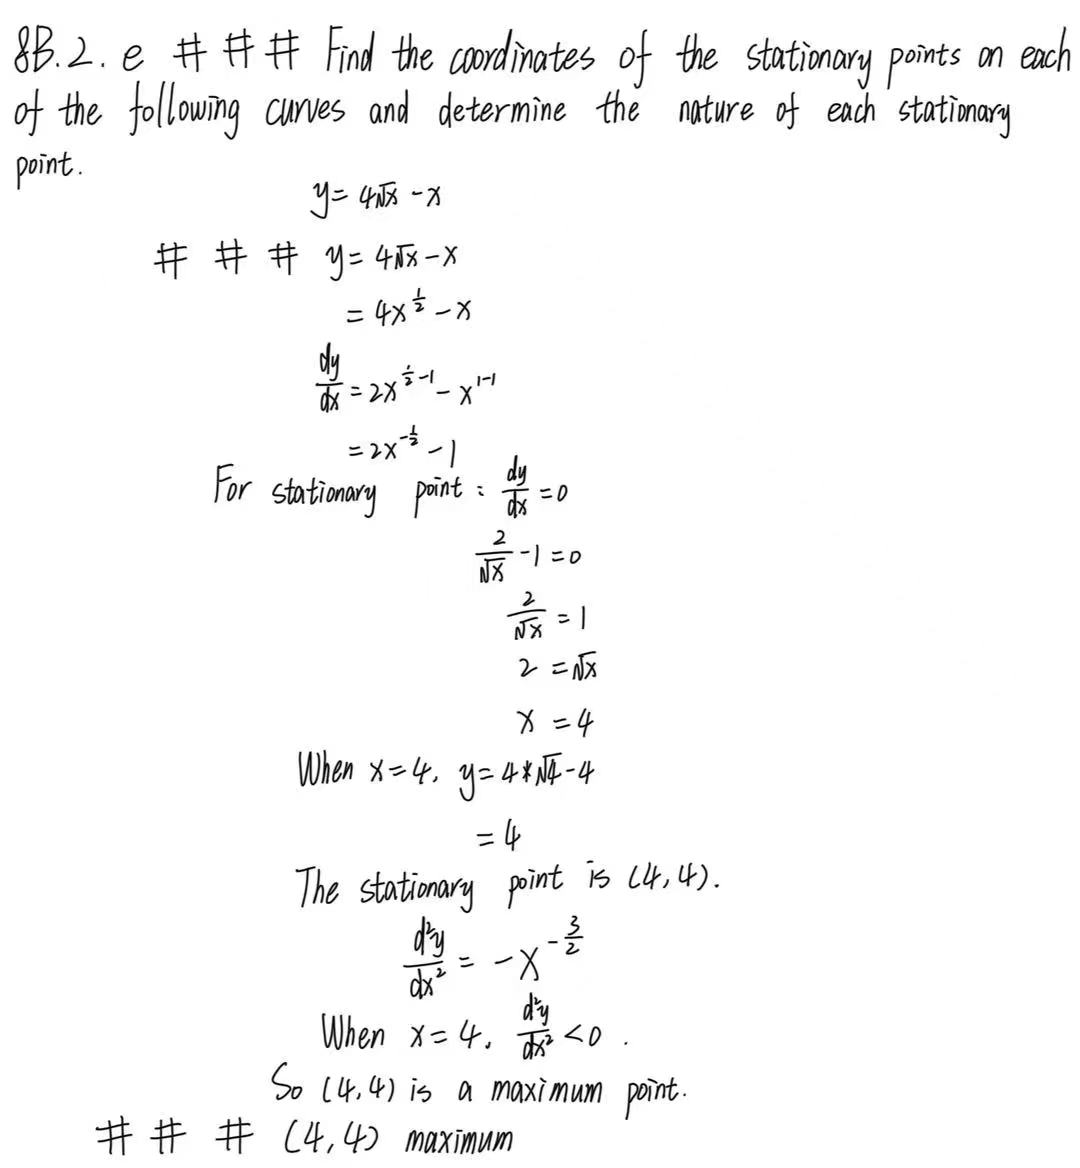 8B.2.e # # # Find the coordinates of the stationary points on each
of the following curves and determine the nature of each stationary
point.
y = 4√x - x
# # # y = 4√x - x
= 4x^{1/2} - x
dy/dx = 2x^{1/2 - 1} - x^{1-1}
= 2x^{-1/2} - 1
For stationary point : dy/dx = 0
2/√x - 1 = 0
2/√x = 1
2 = √x
x = 4
When x = 4, y = 4 * √4 - 4
= 4
The stationary point is (4,4).
d²y/dx² = -x^{-3/2}
When x = 4, d²y/dx² < 0 .
So (4,4) is a maximum point.
# # # (4,4) maximum